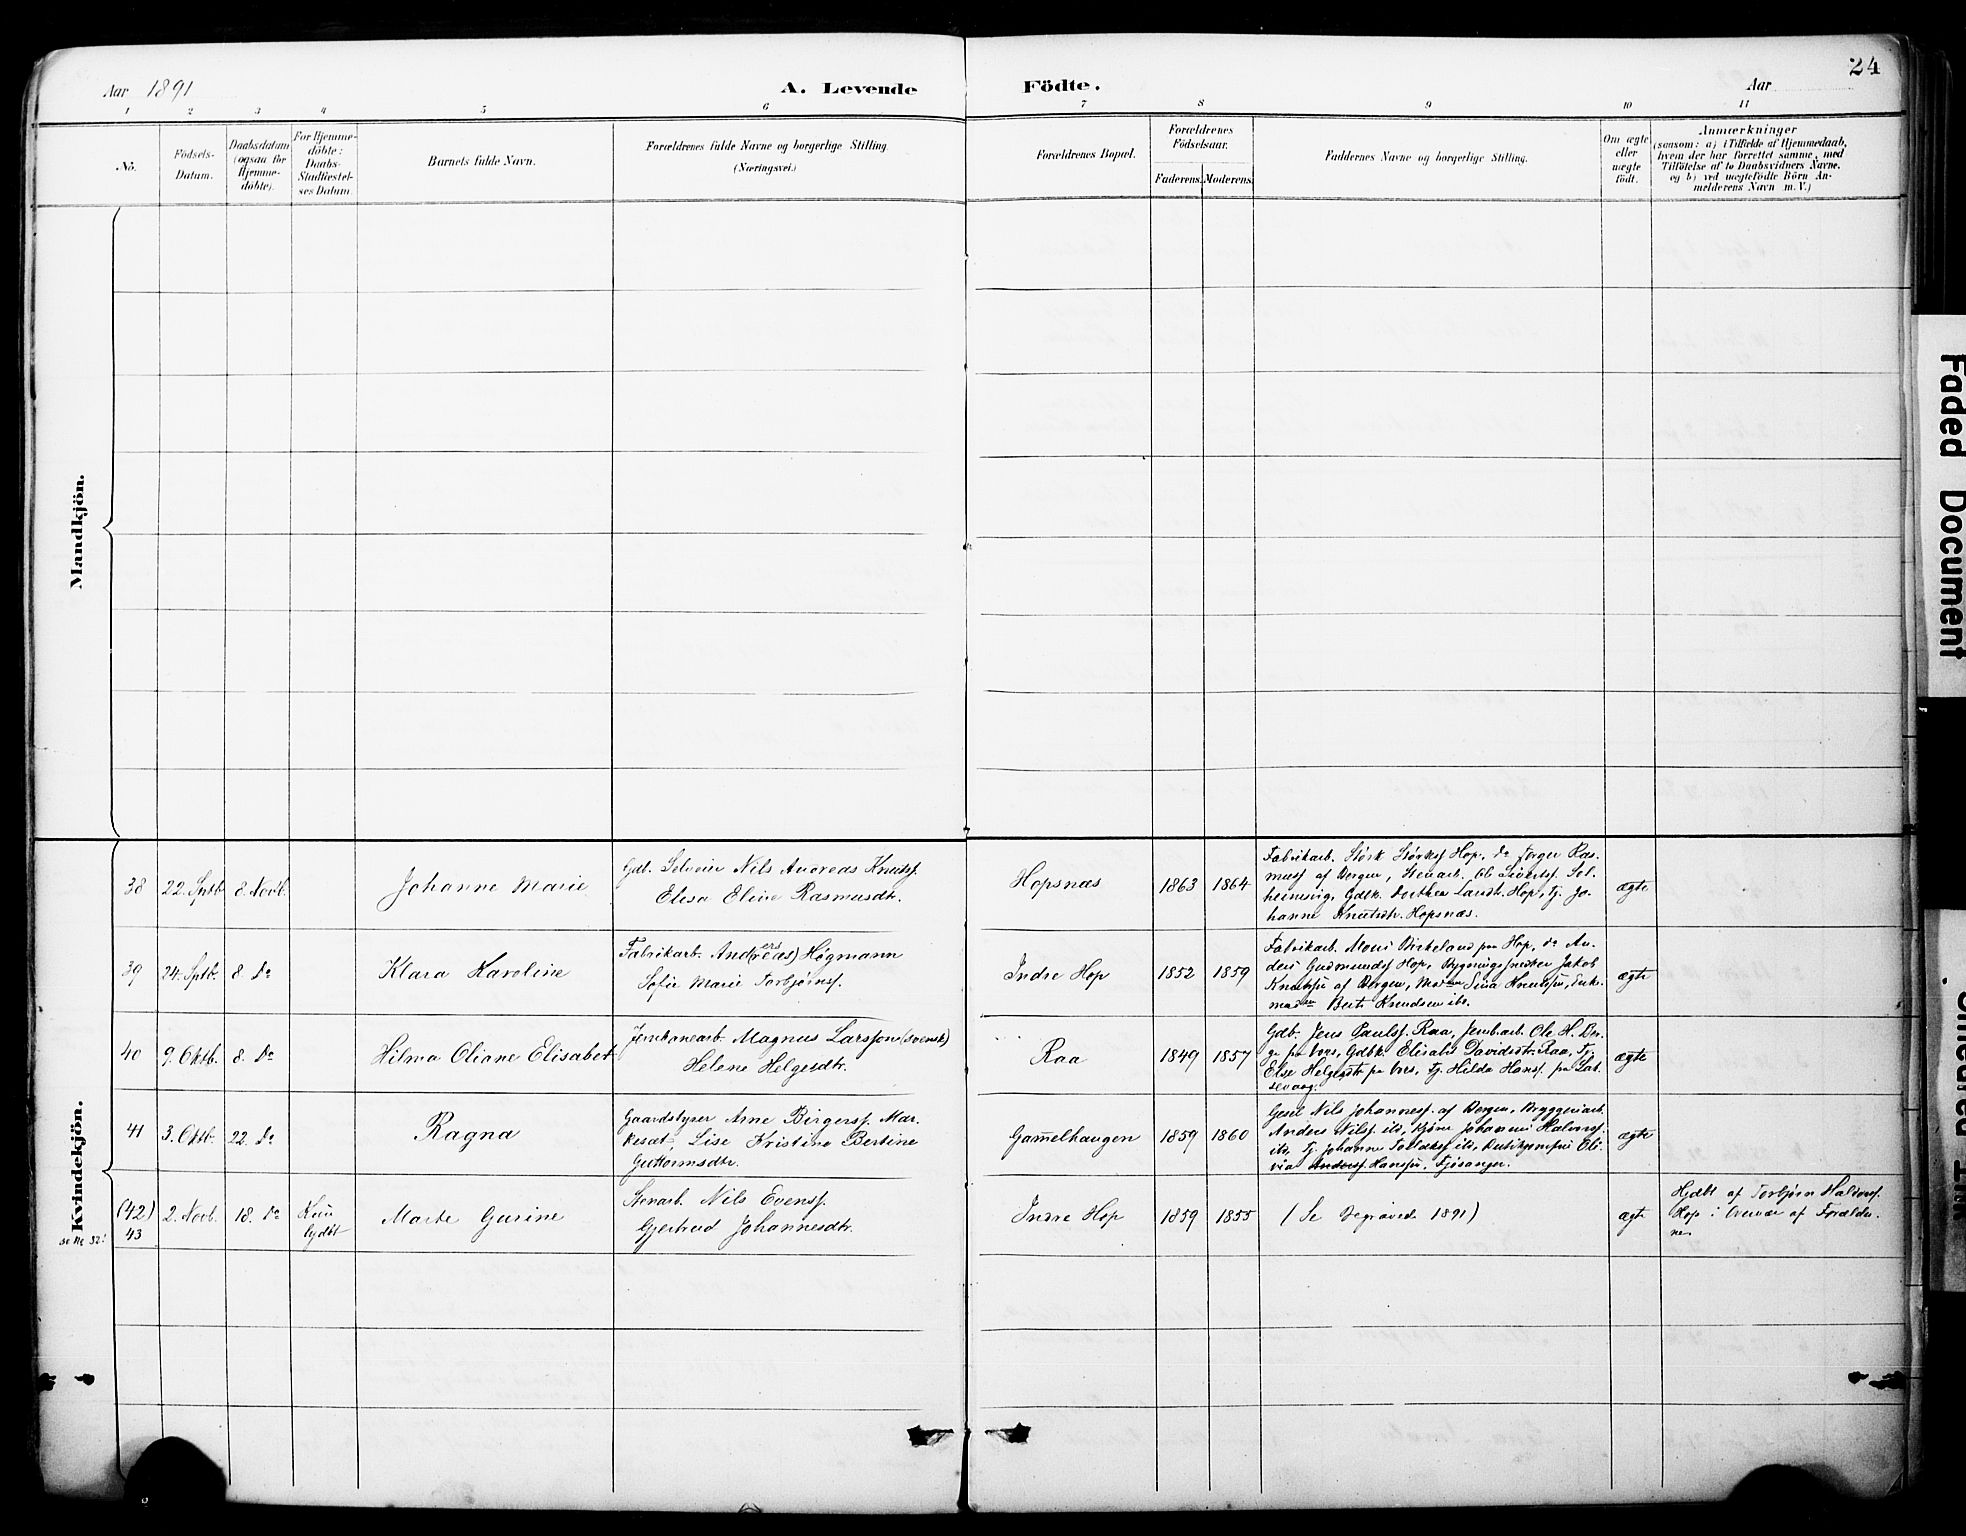 24
Aar 1891
A. Levende Födte.
Aar
1 2 3 4 5 6 7 8 9 10 11
No.
Födsels-
Datum.
Daabsdatum
(ogsaa for
Hjemme-
döbte).
For Hjemme-
döbte:
Daabs-
Stadfæstel-
ses Datum.
Barnets fulde Navn.
Forældrenes fulde Navne og borgerlige Stilling.
(Næringsvei.)
Forældrenes Bopæl.
Forældrenes
Födselsaar.
Faderens.
Moderens.
Faddernes Navne og borgerlige Stilling.
Om ægte
eller
uægte
födt.
Anmærkninger
(saasom: a) i Tilfælde af Hjemmedaab,
hvem der har forrettet samme, med
Tilföielse af to Daabsvidners Navne.
og b) ved uægtefödte Börn An-
melderens Navn m. V.)
Mandkjön.
Kvindekjön.
38
22. Sptb.
8. Novb.
Johanne Marie
Gdl. Selveier Nils Andreas Knuts.
Elisa Eline Rasmusdtr.
Hopsnæs
1863
1864
Fabrikarb. Størk Størks. Hop, do Jørger Ras-
muss. af Bergen, Stenarb. Ole Siverts. Sel-
heimsvig, Gdbk. Dorthea Hop, Tj. Jo-
hanne Knutsdtr. Hopsnæs.
ægte
39
24. Sptb.
8. Do
Klara Karoline
Fabrikarb. And(reas)ers Høgmann
Sofie Marie Torbjørns.
Indre Hop
1852
1859
Fabrikarb. Mons Birkeland paa Hop, do An-
ders Gudmunds. Hop, Bygningssnedker Jakob
Knutsen af Bergen, Madam Sina Knutsen,
Berte Knudsen ibd.
ægte
40
9. Oktb.
8. Do
Hilma Oliane Elisabet
Jernbanearb. Magnus Larsson (svensk)
Helene Helgesdtr.
Raa
1849
1857
Gdb. Jens Pauls. Raa, Jernb.arb. Ole H.
fra Voss, Gdbk. Elisabet Davidsdtr. Raa, Tj.
Else Helgesdtr. fra Voss, Tj. Hilda Hans. fra Lak-
sevaag.
ægte
41
3. Oktb.
22. Do
Ragna
Gaardstyrer Arne Birgers. Mar-
kesæt, Lise Kristine Bertine
Guttormsdtr.
Gamelhaugen
1859
1860
Gesel Nils Johannes. af Bergen, Bryggeriarb.
Anders Nils. ibd, Johannes Halvors.
ibd, Tj. Johanne ibd, Oli-
via Anders. Hansen, Fjøsanger.
ægte
(42)
43
se No 32!
2. Novb.
18. Do
Kun
lydbt
Marte Gurine
Stenarb. Nils Evens.
Gjertrud Johannesdtr.
Indre Hop
1859
1855
(Se Begravede 1891)
ægte
Hjdbt af Torbjørn Haldors.
Hop i Overvær af Forældre-
ne.
Faded Document